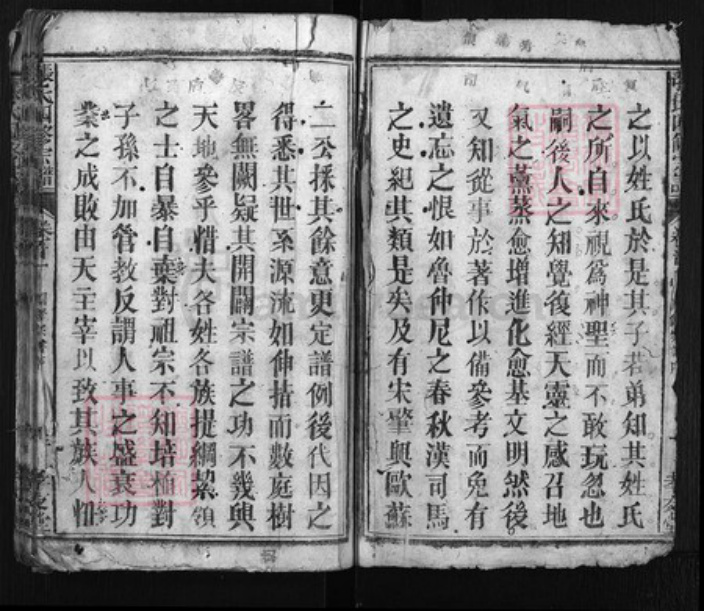 之以姓氏於是其子若弟知其姓氏
之所自來視爲神聖而不敢玩忽也
嗣後人之知覺復經天靈之感召地
氣之薰蒸愈增進化愈基文明然後
又知從事於著作以備參考而免有
遺忘之恨如魯仲尼之春秋漢司馬
之史紀其類是矣及有宋肇興歐蘇
二公揉其餘意更定譜例後代因之
得悉其世系源流如伸指而數庭樹
畧無闕疑其開闢宗譜之功不幾與
天地參乎惜夫各姓各族提綱挈領
之士自暴自棄對祖宗不知培植對
子孫不加管教反謂人事之盛衰功
業之成敗由天主宰以致其族人忸